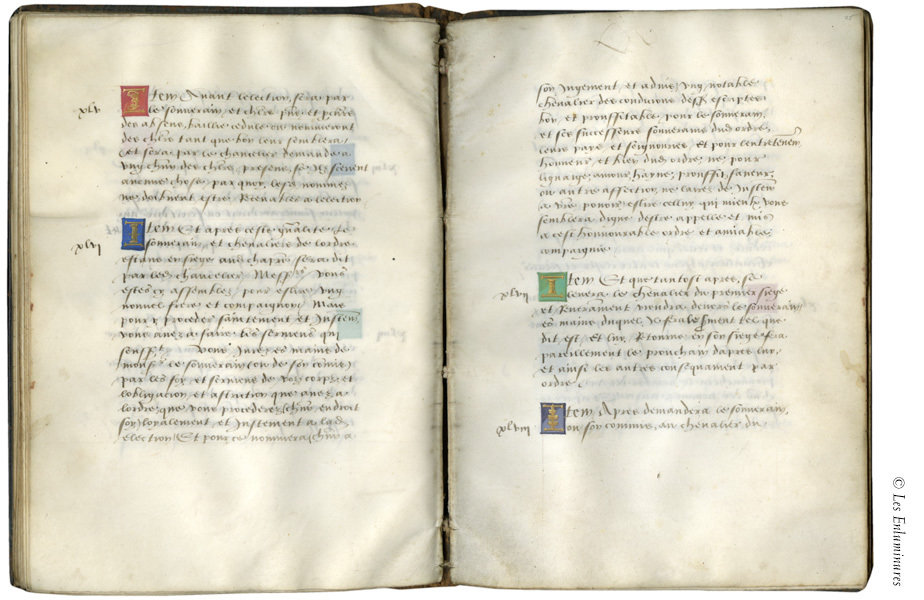 xlv
Item Avant lelection, sera par
le souverain, et chlrs pns et pcures
des absens, baillie cedule ou nommeront
des chlrs tant que bon leur semblera
Et sera par le chancelier demande a
ung chun des chlrs, presens, se Ilz scevent
aucune chose, parquoy, lesd nommez
ne doibvent estre Recevables a lelection
xlvi
Item Et apres ceste qualite, le
souverain, et chevaliers de lordre
estans en siege aud chapitre sera dit
par led chancelier Mess Vous
estes cy assemblez pour eslire ung
nouvel frere et compaignon Mais
pour y proceder sainctement et Justem
vous avez a faire les sermens qui
sensst Vous Jurez es mains de
mons le souverain (ou de son comis)
par les foy, et sermens de voz corps, et
lobligacion, et astriction que avez a
lordre, que vous procederez chun endroit
soy, loyalement, et Justement a lad
election Et pour ce nommera chun a
25
son Jugement et advis, ung notable
chevalier des condicions dess escriptes
bon, et prouffitable, pour le souverain,
et ses successeurs souverains dud ordre,
leurs pays, et seignouries, et pour lentretenem
honneur, et bien dud ordre, ne pour
lignaige, amour, hayne, prouffit, faveur,
ou autre affection, ne lairez de Justem
a vre povoir eslire celluy qui mieulx vous
semblera digne destre appelle et mis
a cest honnourable ordre et amiable
compaignie
xlvii
Item Et que tantost apres, se
levera le chevalier du premier siege
et Reveramment viendra devers le souverain
es mains duquel Il fera le serment tel que
dit est, et luy, Retourne en son siege fera
pareillement le prouchain dapres luy,
et ainsi les autres consequament par
ordre
xlviii
Item, Apres demandera le souverain,
ou son commis, au chevalier du
© Les Enluminures